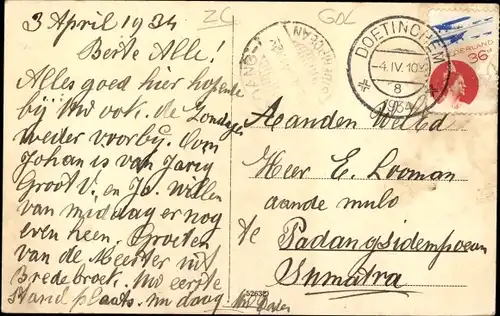 3 April 1934
Beste Alle!
Alles goed hier hopende
bij Uw ook. de Zondag
weder voorbij. Oom
Johan is van Jarig
Groot V. en Jo. Willen
van middag er nog
even heen. Groeten
van de Meester uit
Bredebroek. Uw eerste
Stand plaats. nu daag
ZG
GDL
DOETINCHEM
4.IV.10
8
1934
NEDERLAND
36
Aan den
Heer E. Looman
aan de mulo
te Padangsidempoean
Sumatra